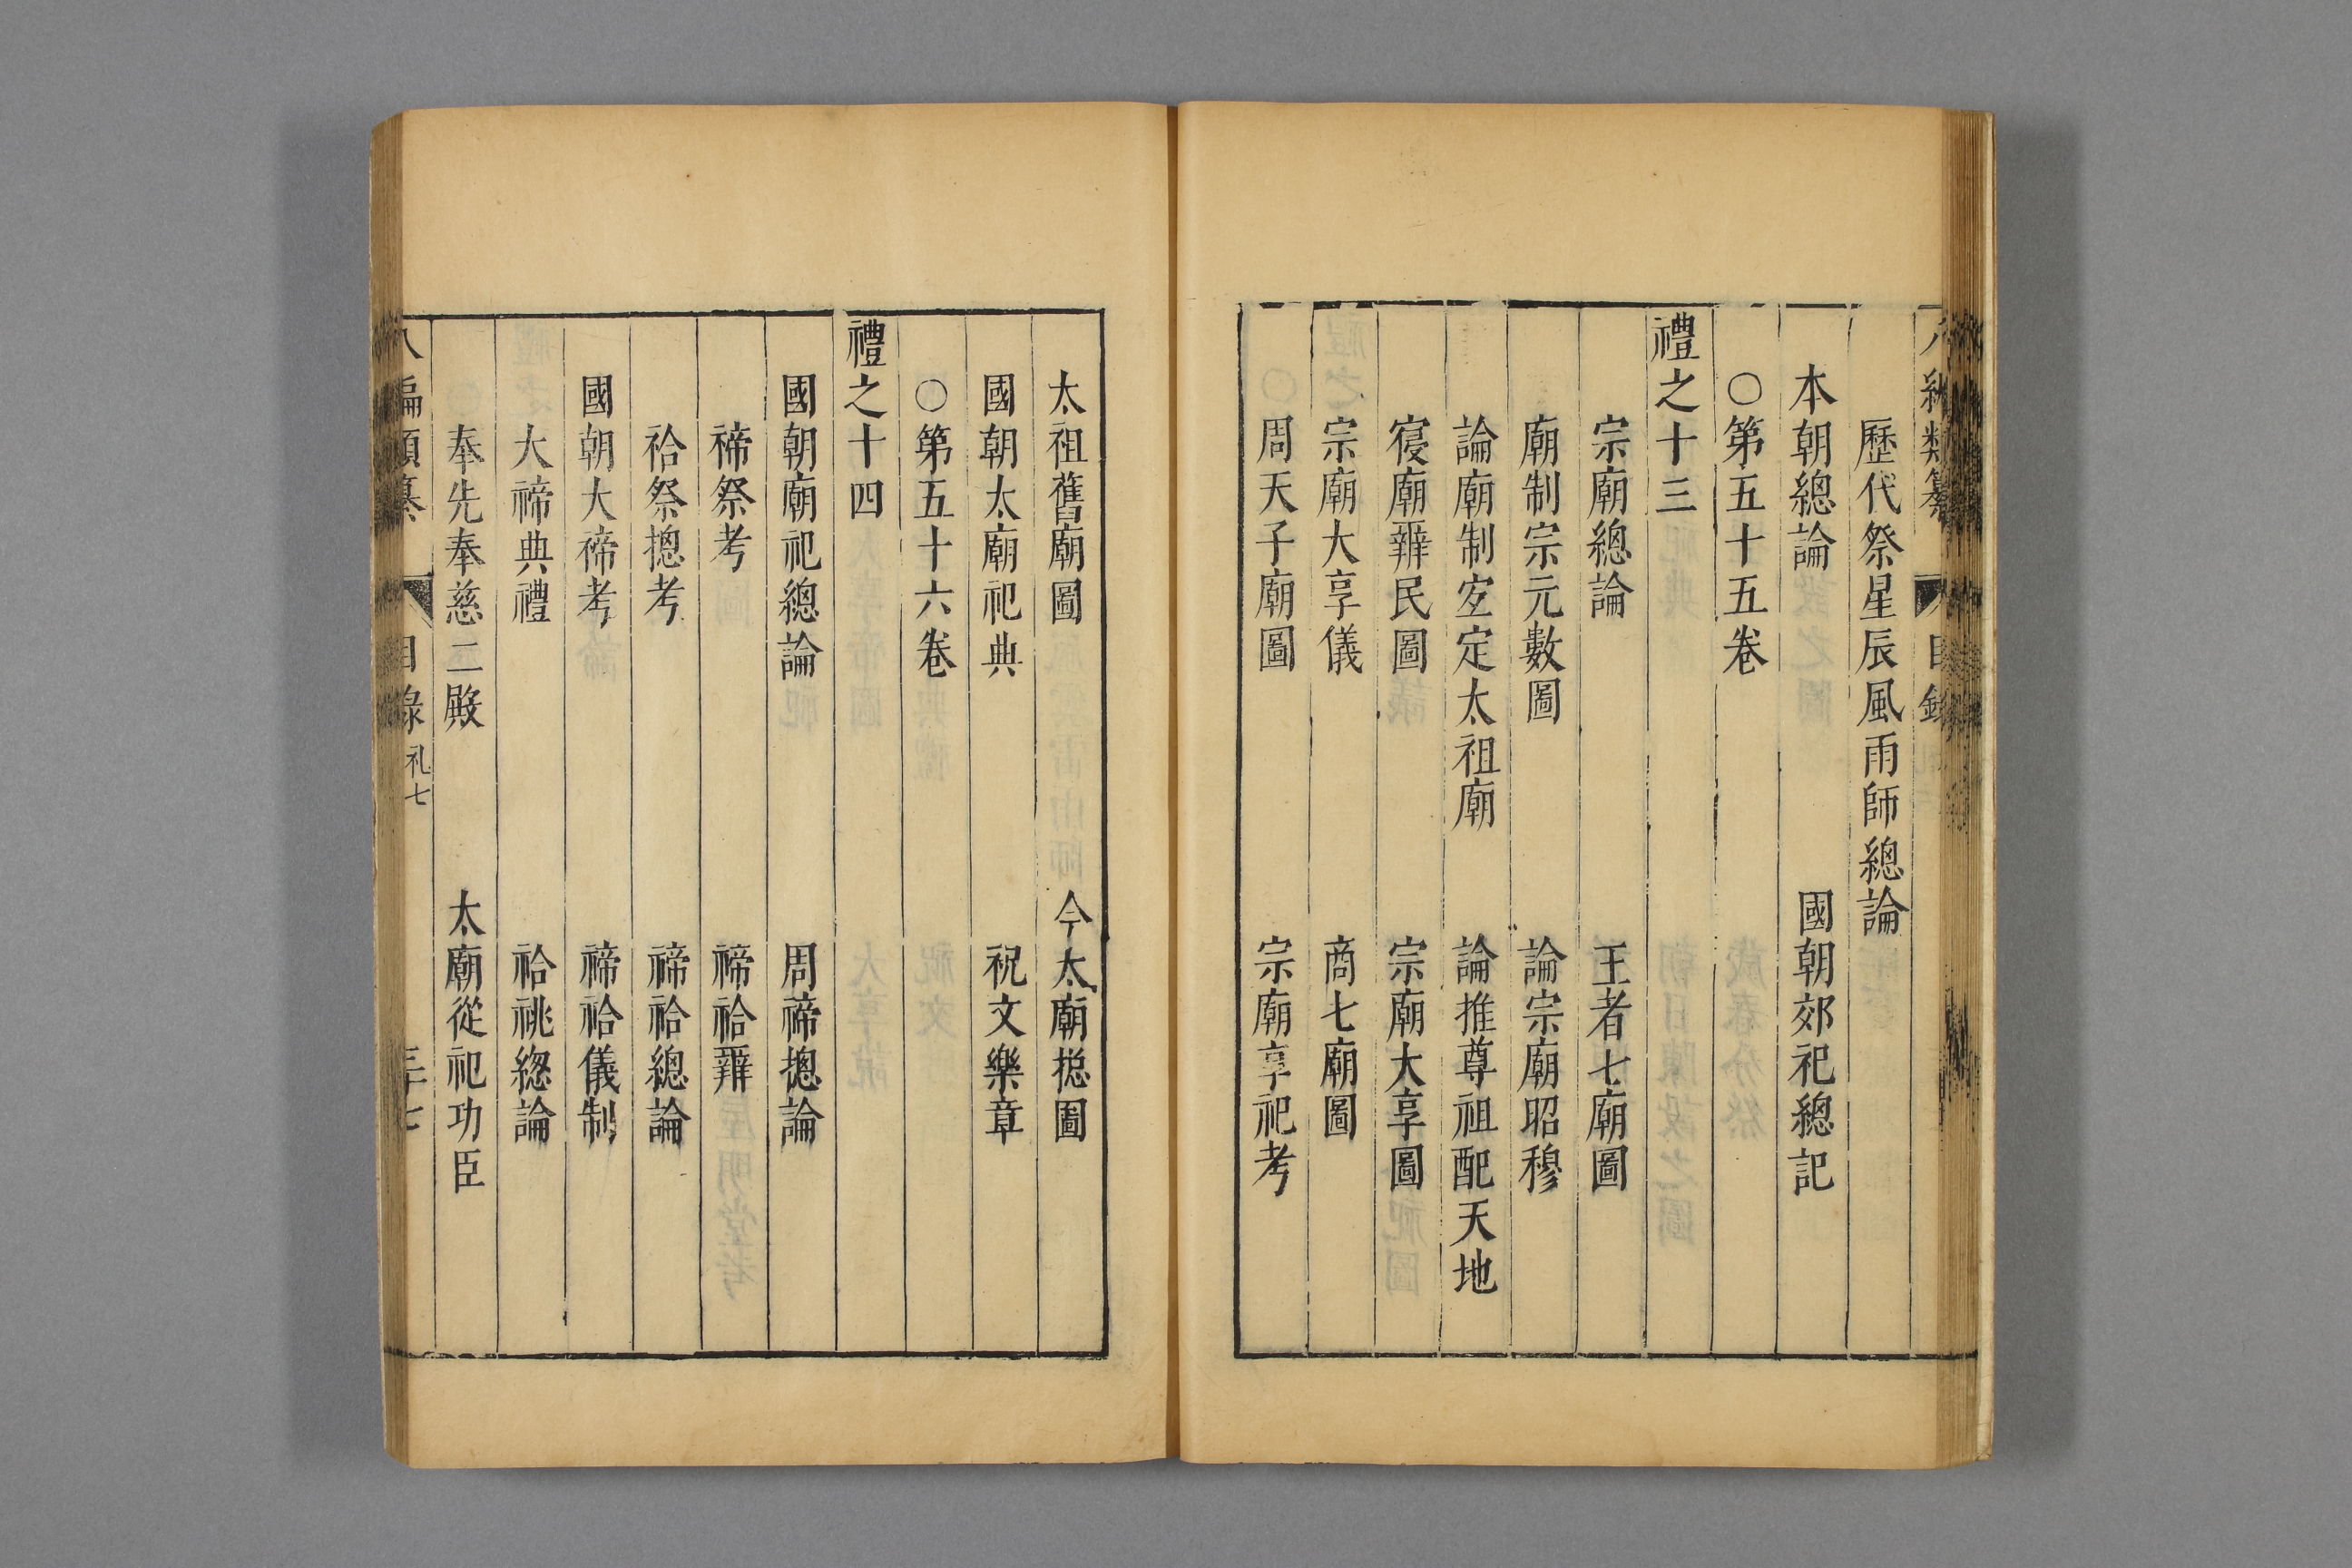 歷代祭星辰風雨師總論
本朝總論 國朝郊祀總記
○第五十五卷
禮之十三
宗廟總論 王者七廟圖
廟制宗元數圖 論宗廟昭穆
論廟制㝎定太祖廟 論推尊祖配天地
寑廟辨民圖 宗廟大享圖
宗廟大享儀 商七廟圖
周天子廟圖 宗廟享祀考
太祖舊廟圖 今太廟摠圖
國朝太廟祀典 祝文樂章
○第五十六卷
禮之十四
國朝廟祀總論 周禘摠論
禘祭考 禘祫辨
祫祭摠考 禘祫總論
國朝大禘考 禘祫儀制
大禘典禮 祫祧總論
奉先奉慈二殿 太廟從祀功臣
八編類纂 目錄 礼七 三十七